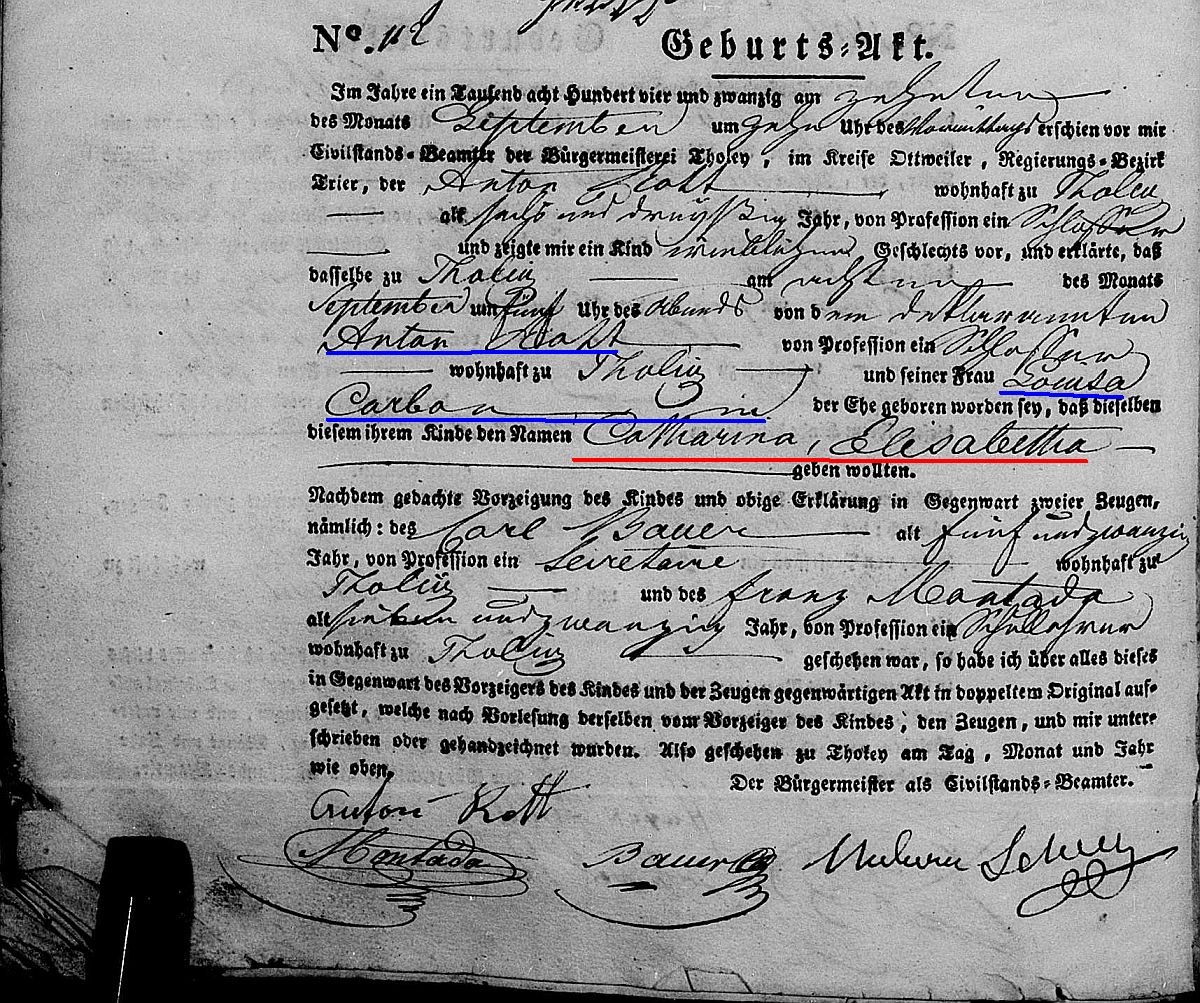 Nº. 112 Geburts-Akt.
Im Jahre ein Tausend acht Hundert vier und zwanzig am zehnten
des Monats September um zehn Uhr des Vormittags erschien vor mir
Civilstands-Beamter der Bürgermeisterei Tholey, im Kreise Ottweiler, Regierungs-Bezirk
Trier, der Anton wohnhaft zu Tholey
alt sechs und dreyßig Jahr, von Profession ein Schlosser
und zeigte mir ein Kind weiblichen Geschlechts vor, und erklärte, daß
dasselbe zu Tholey am achten des Monats
September um fünf Uhr des Abends von dem deklaranten
Anton von Profession ein Schlosser
wohnhaft zu Tholey und seiner Frau Louisa
Carbon in der Ehe geboren worden sey, daß dieselben
diesem ihrem Kinde den Namen Catharina, Elisabetha
geben wollten.
Nachdem gedachte Vorzeigung des Kindes und obige Erklärung in Gegenwart zweier Zeugen,
nämlich: des Carl Bauer alt fünf und zwanzig
Jahr, von Profession ein Secretaire wohnhaft zu
Tholey und des Franz Montada
alt sieben und zwanzig Jahr, von Profession ein Schullehrer
wohnhaft zu Tholey geschehen war, so habe ich über alles dieses
in Gegenwart des Vorzeigers des Kindes und der Zeugen gegenwärtigen Akt in doppeltem Original auf-
gesetzt, welche nach Vorlesung derselben vom Vorzeiger des Kindes, den Zeugen, und mir unter-
schrieben oder gehandzeichnet wurden. Also geschehen zu Tholey am Tag, Monat und Jahr
wie oben.
Der Bürgermeister als Civilstands-Beamter.
Anton Rott
Montada Bauer